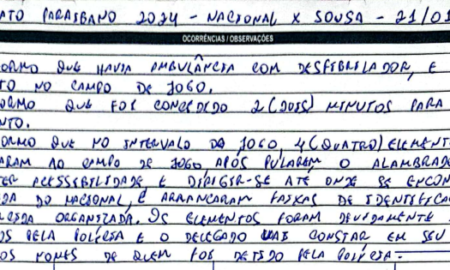 ATO PARAIBANO 2024 - NACIONAL X SOUSA - 21/01
OCORRÊNCIAS / OBSERVAÇÕES
ORMO QUE HAVIA AMBULÂNCIA COM DESFIBRILADOR, E
TO NO CAMPO DE JOGO.
ORMO QUE FOI CONCEDIDO 2 (DOIS) MINUTOS PARA
NTO.
ORMO QUE NO INTERVALO DO JOGO, 4 (QUATRO) ELEMENT
ARAM AO CAMPO DE JOGO, APÓS PULAREM O ALAMBRADO
TER ACESSIBILIDADE E DIRIGIR-SE ATÉ ONDE SE ENCON
DA DO NACIONAL, E ARRANCARAM FAIXAS DE IDENTIFICA
RCIDA ORGANIZADA. OS ELEMENTOS FORAM DEVIDAMENTE
OS PELA POLÍCIA E O DELEGADO VAI CONSTAR EM SEU
OS NOMES DE QUEM FOI DETIDO PELA POLÍCIA.